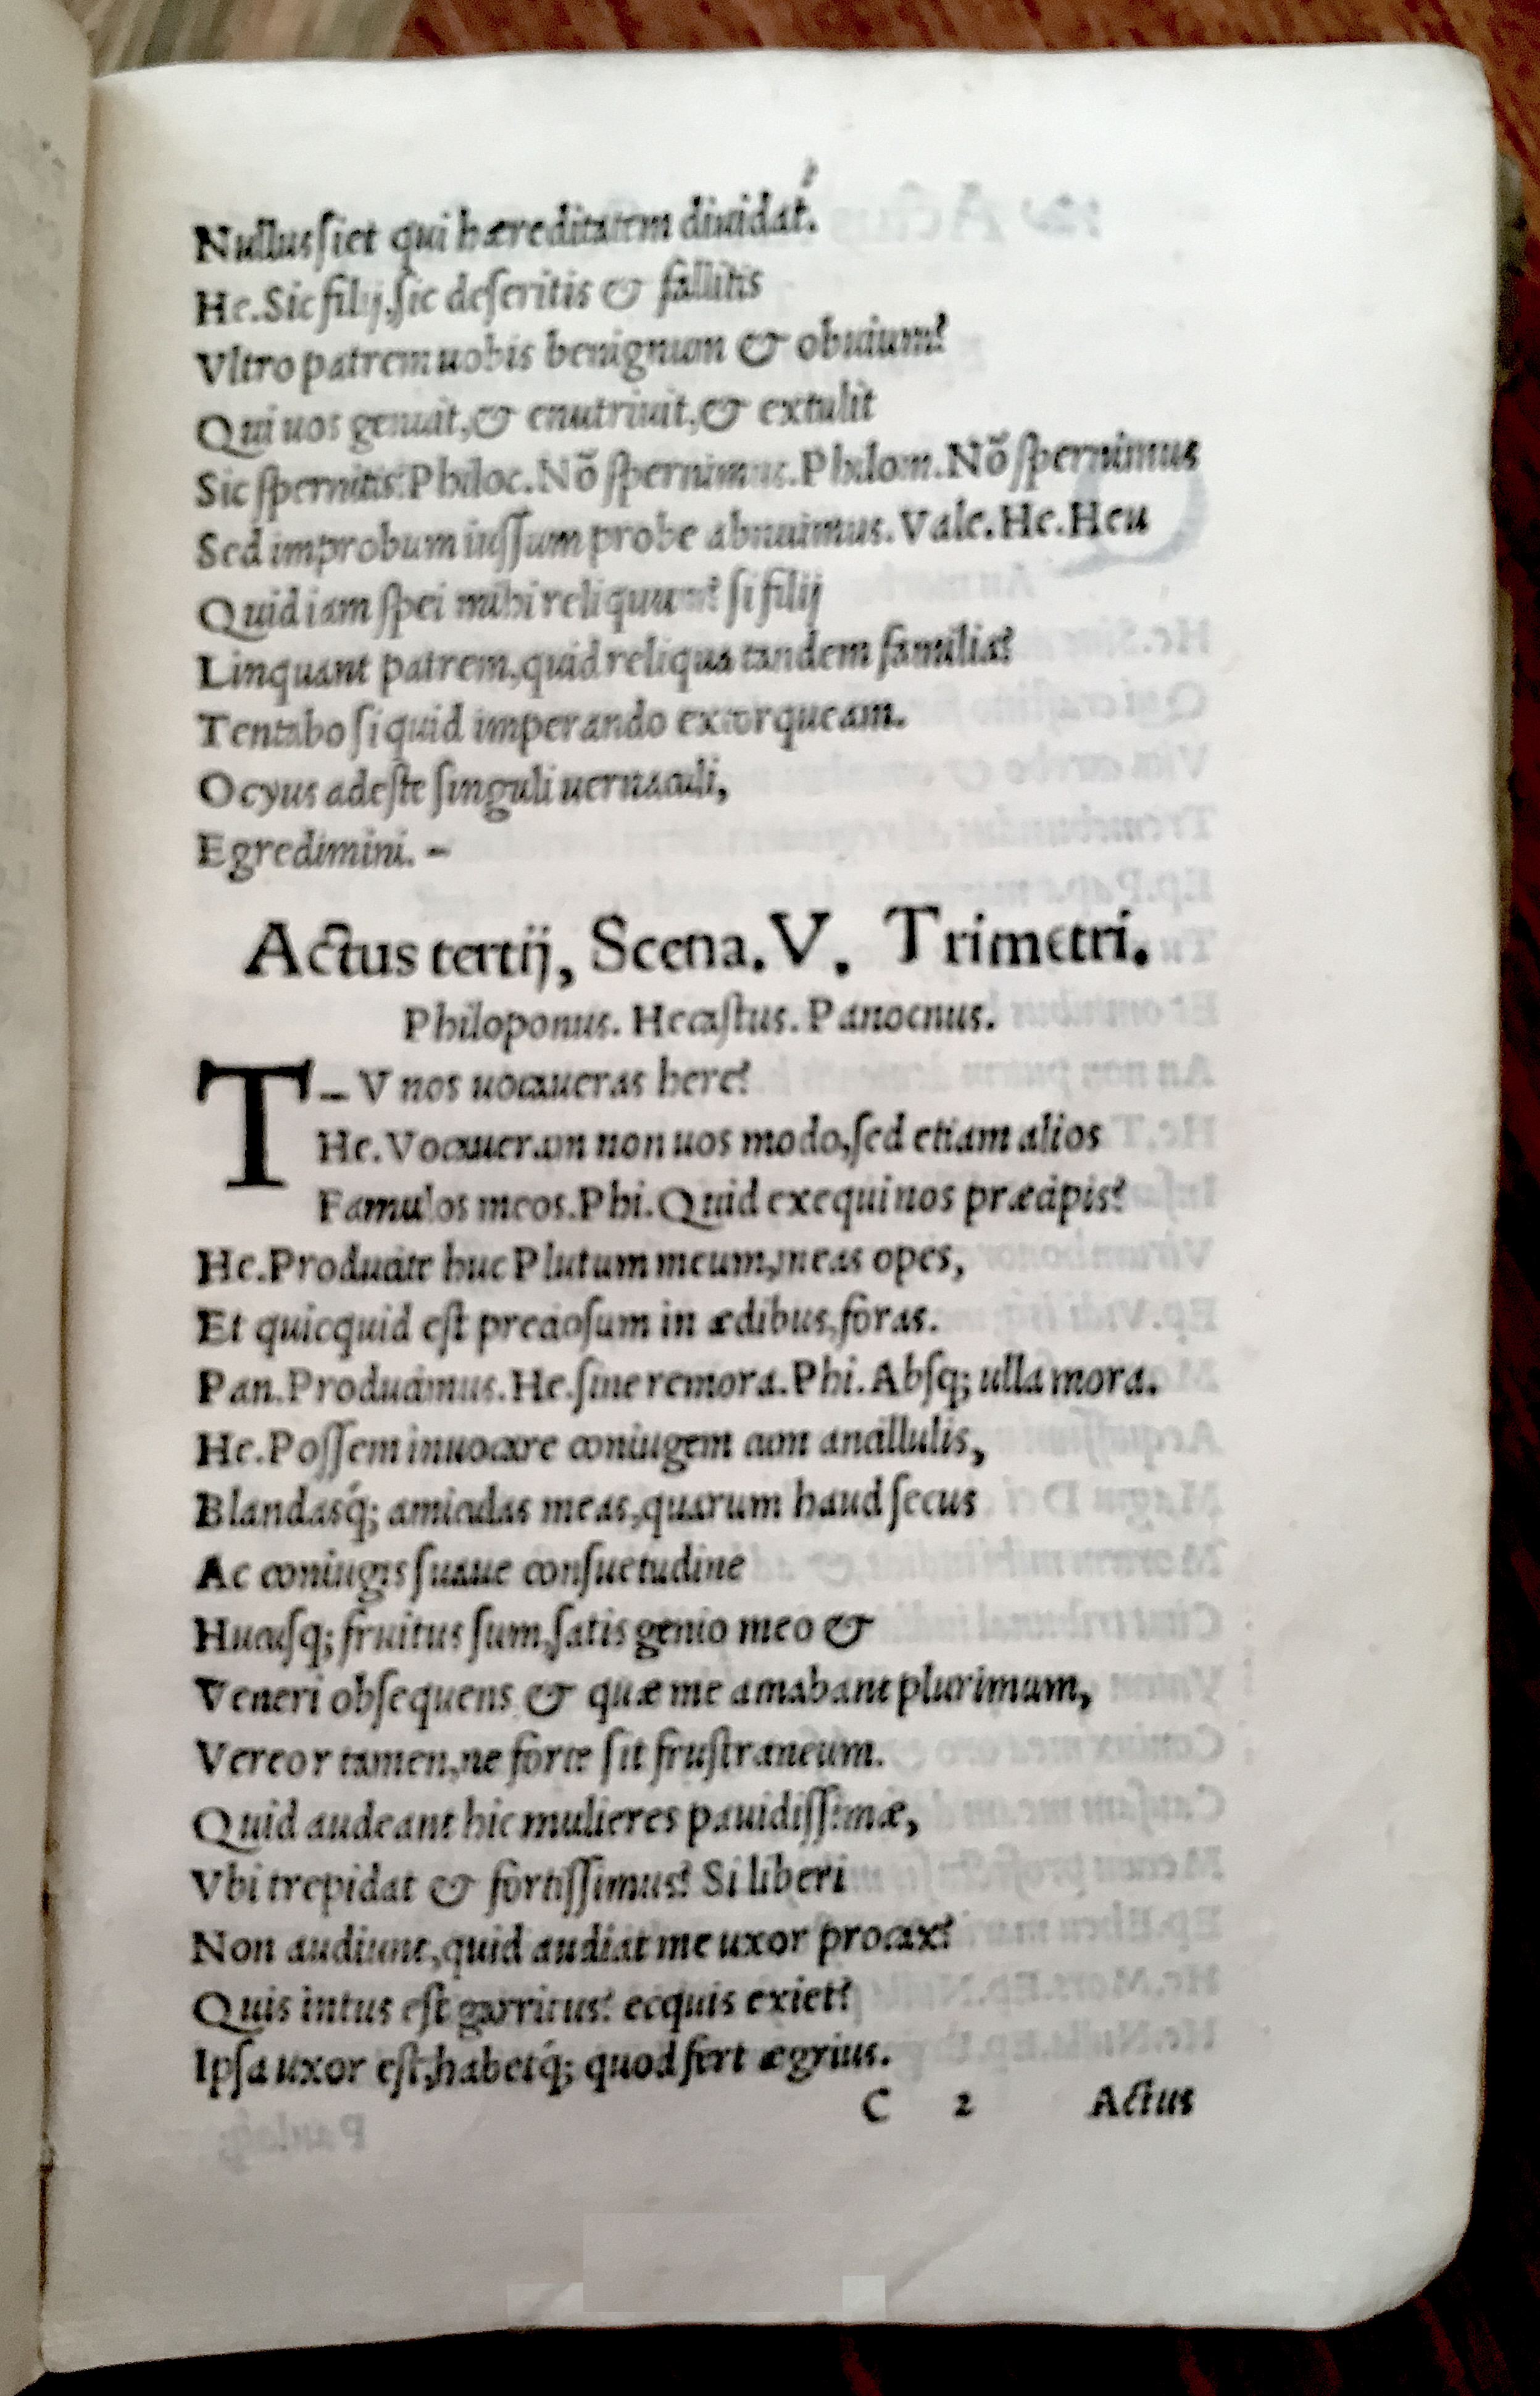 Nullus siet qui hæreditatem diuidat.
He. Sic filij, sic deseritis & fallitis
Vltro patrem uobis benignum & obuium?
Qui uos genuit, & enutriuit, & extulit
Sic spernitis? Philoc. Nõ spernimus. Philom. Nõ spernimus
Sed improbum iussum probe abnuimus. Vale. He. Heu
Quid iam spei mihi reliquum? si filij
Linquant patrem, quid reliqua tandem familia?
Tentabo si quid imperando extorqueam.
Ocyus adeste singuli uernaculi,
Egredimini. –
Actus tertij, Scena. V. Trimetri.
Philoponus. Hecastus. Panocnus.
T – V nos uocaueras here?
He. Vocaueram non uos modo, sed etiam alios
Famulos meos. Phi. Quid exequi nos præcipis?
He. Producite huc Plutum meum, meas opes,
Et quicquid est preciosum in ædibus, foras.
Pan. Producimus. He. sine remora. Phi. Absq; ulla mora.
He. Possem inuocare coniugem cum ancillulis,
Blandasq́; amiculas meas, quarum haud secus
Ac coniugis suaue consuetudine
Hucusq; fruitus sum, satis genio meo &
Veneri obsequens & quæ me amabant plurimum,
Vereor tamen, ne forte sit frustraneum.
Quid audeant hic mulieres pauidissimæ,
Vbi trepidat & fortissimus? Si liberi
Non audiunt, quid audiat me uxor procax?
Quis intus est garritus? ecquis exiet?
Ipsa uxor est, habetq́; quod fert ægrius.
C 2 Actus